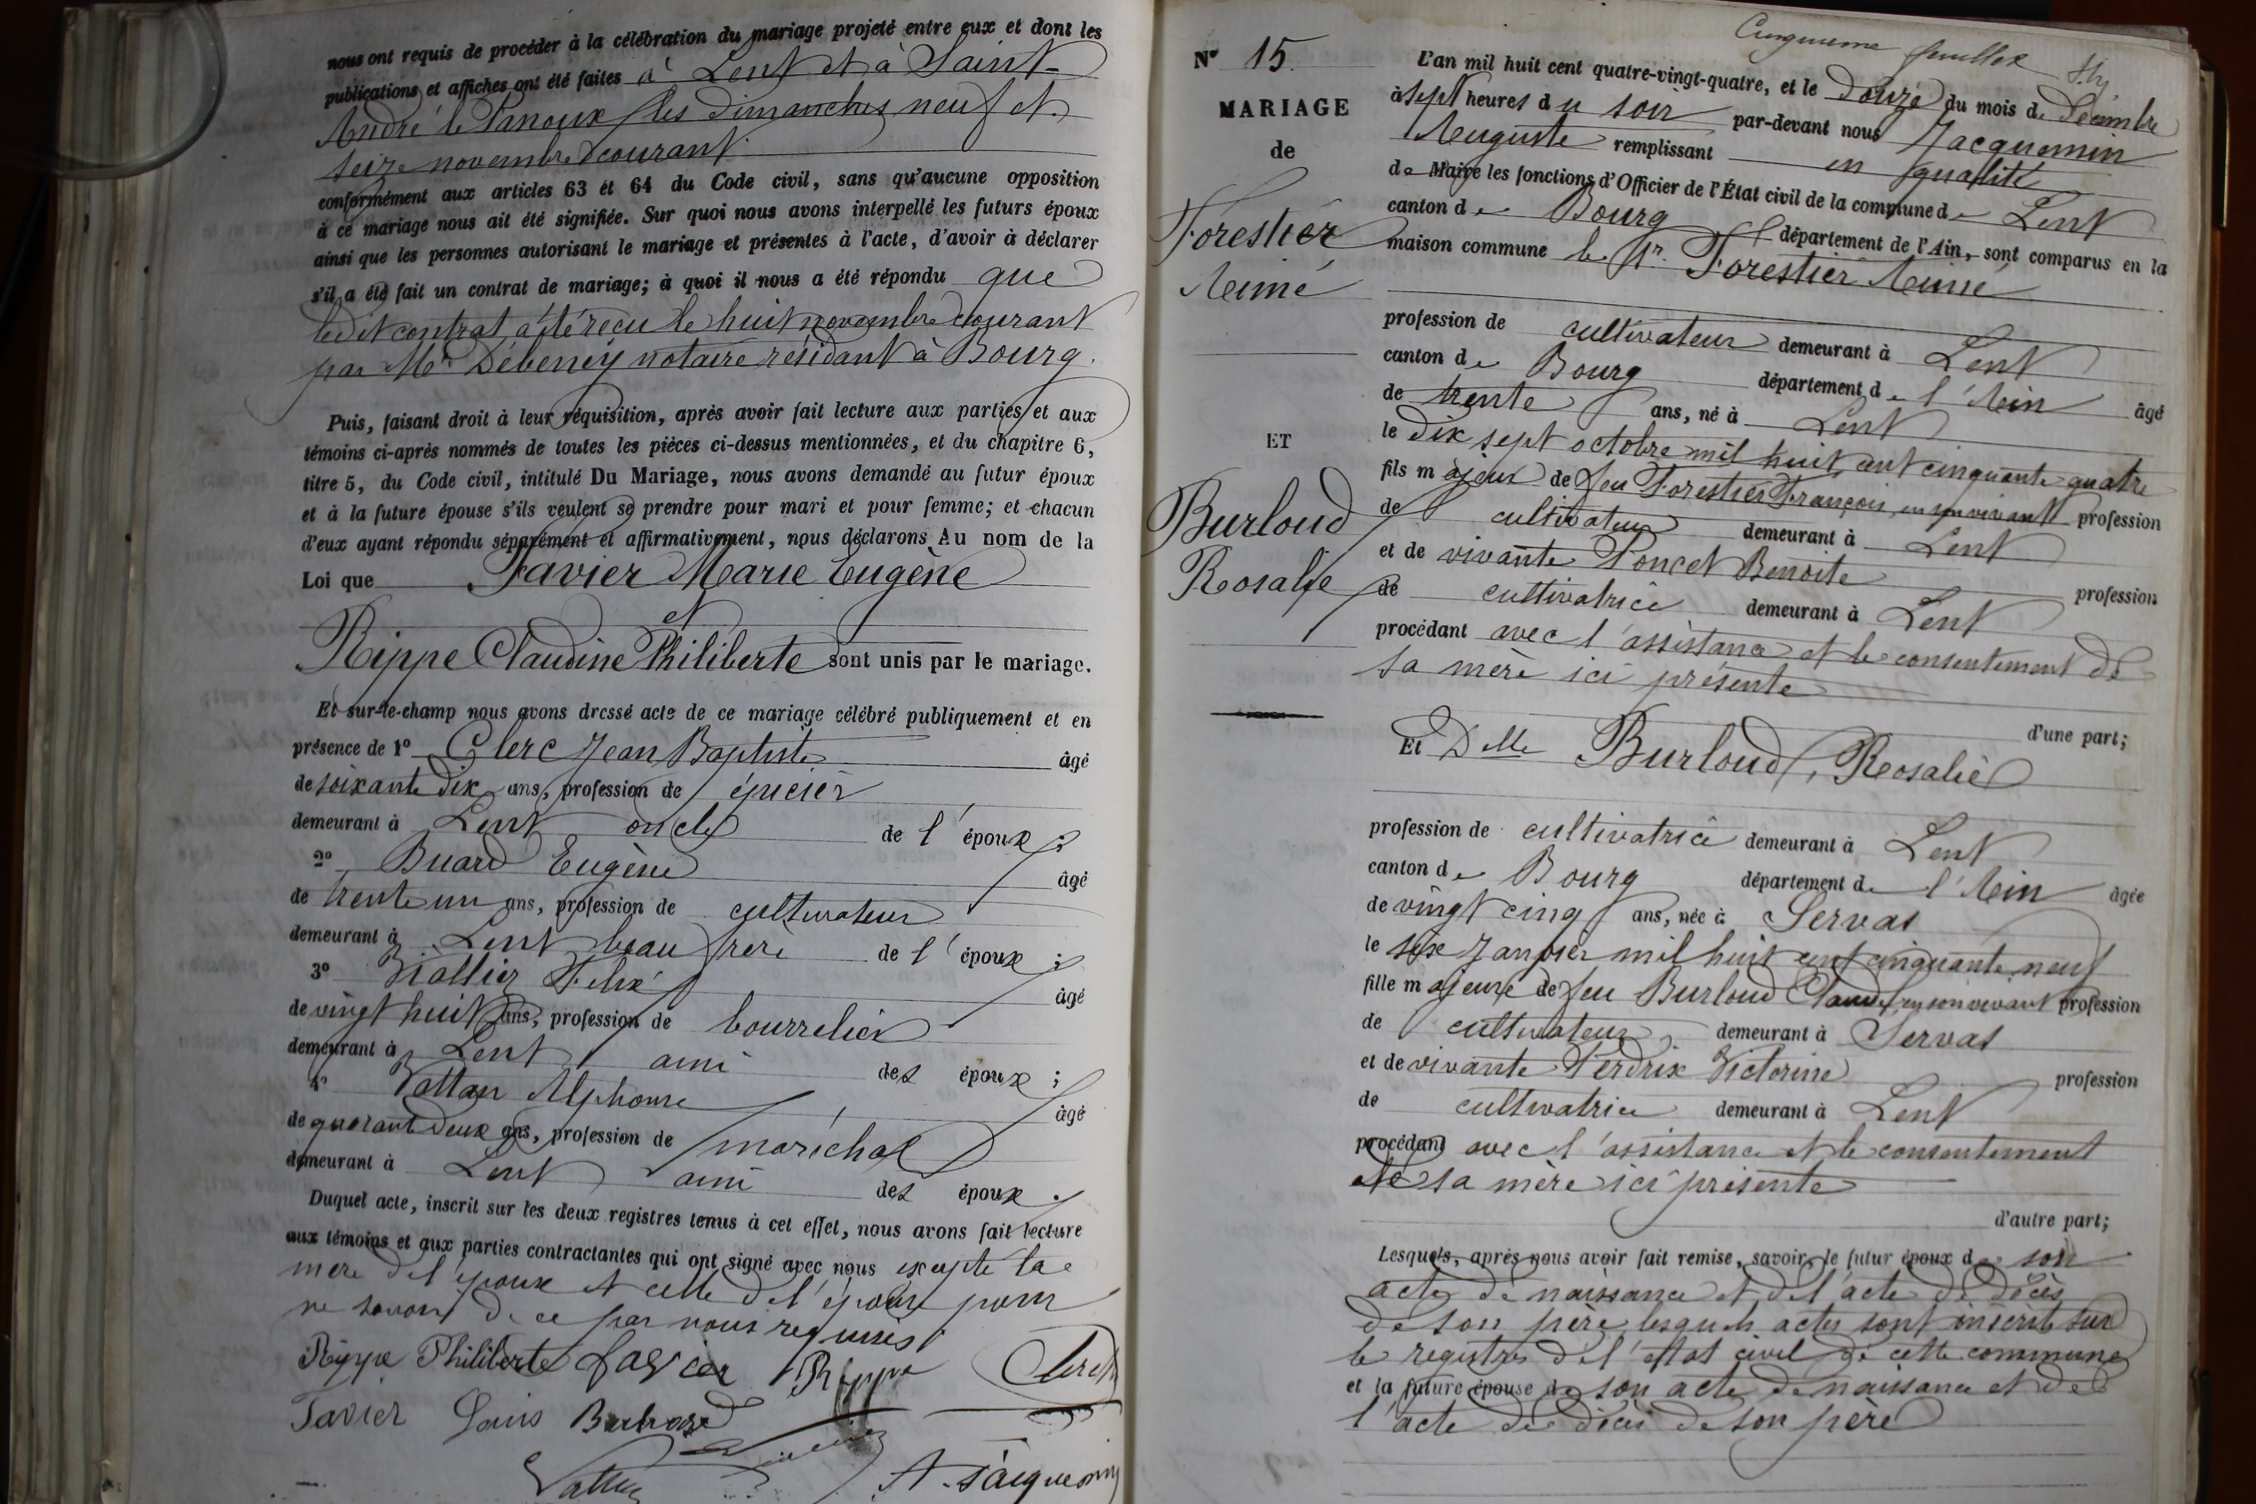 nous ont requis de procéder à la célébration du mariage projeté entre eux et dont les
publications et affiches ont été faites à Lent et à Saint-
André le Panoux les dimanches neuf et
seize novembre courant
conformément aux articles 63 et 64 du Code civil, sans qu'aucune opposition
à ce mariage nous ait été signifiée. Sur quoi nous avons interpellé les futurs époux
ainsi que les personnes autorisant le mariage et présentes à l'acte, d'avoir à déclarer
s'il a été fait un contrat de mariage; à quoi il nous a été répondu que
ledit contrat a été reçu le huit novembre courant
par Me Débeney notaire résidant à Bourg.
Puis, faisant droit à leur réquisition, après avoir fait lecture aux parties et aux
témoins ci-après nommés de toutes les pièces ci-dessus mentionnées, et du chapitre 6,
titre 5, du Code civil, intitulé Du Mariage, nous avons demandé au futur époux
et à la future épouse s'ils veulent se prendre pour mari et pour femme; et chacun
d'eux ayant répondu séparément et affirmativement, nous déclarons Au nom de la
Loi que Favier Marie Eugène
et
Rippe Claudine Philiberte sont unis par le mariage.
Et sur-le-champ nous avons dressé acte de ce mariage célébré publiquement et en
présence de 1º Clerc Jean Baptiste âgé
de soixante dix ans, profession de épicier
demeurant à Lent oncle de l'époux;
2º Buard Eugène âgé
de trente un ans, profession de cultivateur
demeurant à Lent beau frère de l'époux;
3º Viallier Félix âgé
de vingt huit ans, profession de bourrelier
demeurant à Lent ami des époux;
4º Vattan Alphonse âgé
de quarante deux ans, profession de maréchal
demeurant à Lent ami des époux.
Duquel acte, inscrit sur les deux registres tenus à cet effet, nous avons fait lecture
aux témoins et aux parties contractantes qui ont signé avec nous excepté la
mère de l'époux et celle de l'épouse pour
ne savoir de ce par nous requises
Rippe Philiberte favier Rippe Clerc
Favier Louis
A. Jacquemin
Cinquième feuillet
Nº 15.
MARIAGE
de
Forestier
Aimé
ET
Burloud
Rosalie
L'an mil huit cent quatre-vingt-quatre, et le douze du mois de Décembre
à sept heures du soir par-devant nous Jacquemin
Auguste remplissant en qualité
de Maire les fonctions d'Officier de l'État civil de la commune de Lent
canton de Bourg département de l'Ain, sont comparus en la
maison commune le Sr. Forestier Aimé
profession de cultivateur demeurant à Lent
canton de Bourg département de l'Ain âgé
de trente ans, né à Lent
le dix sept octobre mil huit cent cinquante quatre
fils majeur de feu Forestier François, en son vivant profession
de cultivateur demeurant à Lent
et de vivante Poncet Benoite profession
de cultivatrice demeurant à Lent
procédant avec l'assistance et le consentement de
sa mère ici présente
d'une part;
Et Delle Burloud, Rosalie
profession de cultivatrice demeurant à Lent
canton de Bourg département de l'Ain âgée
de vingt cinq ans, née à Servas
le six Janvier mil huit cent cinquante neuf
fille majeure de feu Burloud Claude, en son vivant profession
de cultivateur demeurant à Servas
et de vivante Perdrix Victorine profession
de cultivatrice demeurant à Lent
procédant avec l'assistance et le consentement
de sa mère ici présente
d'autre part;
Lesquels, après nous avoir fait remise, savoir, le futur époux de son
acte de naissance et de l'acte de décès
de son père lesquels actes sont inscrits sur
le registres de l'état civil de cette commune
et la future épouse de son acte de naissance et de
l'acte de décès de son père